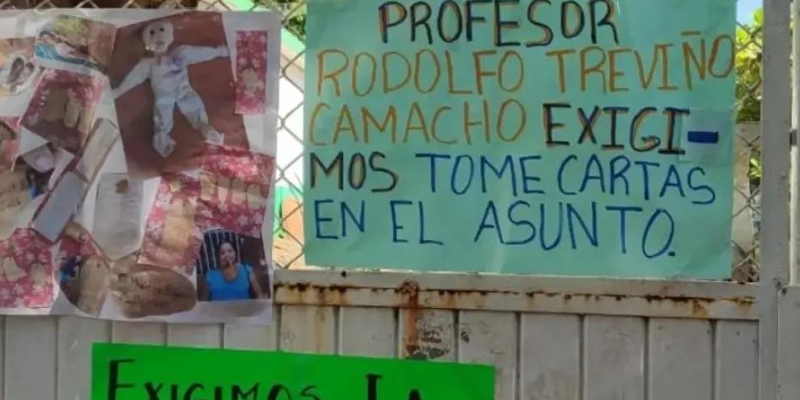 PROFESOR
RODOLFO TREVIÑO
CAMACHO EXIGI-
MOS TOME CARTAS
EN EL ASUNTO.
EXIGIMOS LA